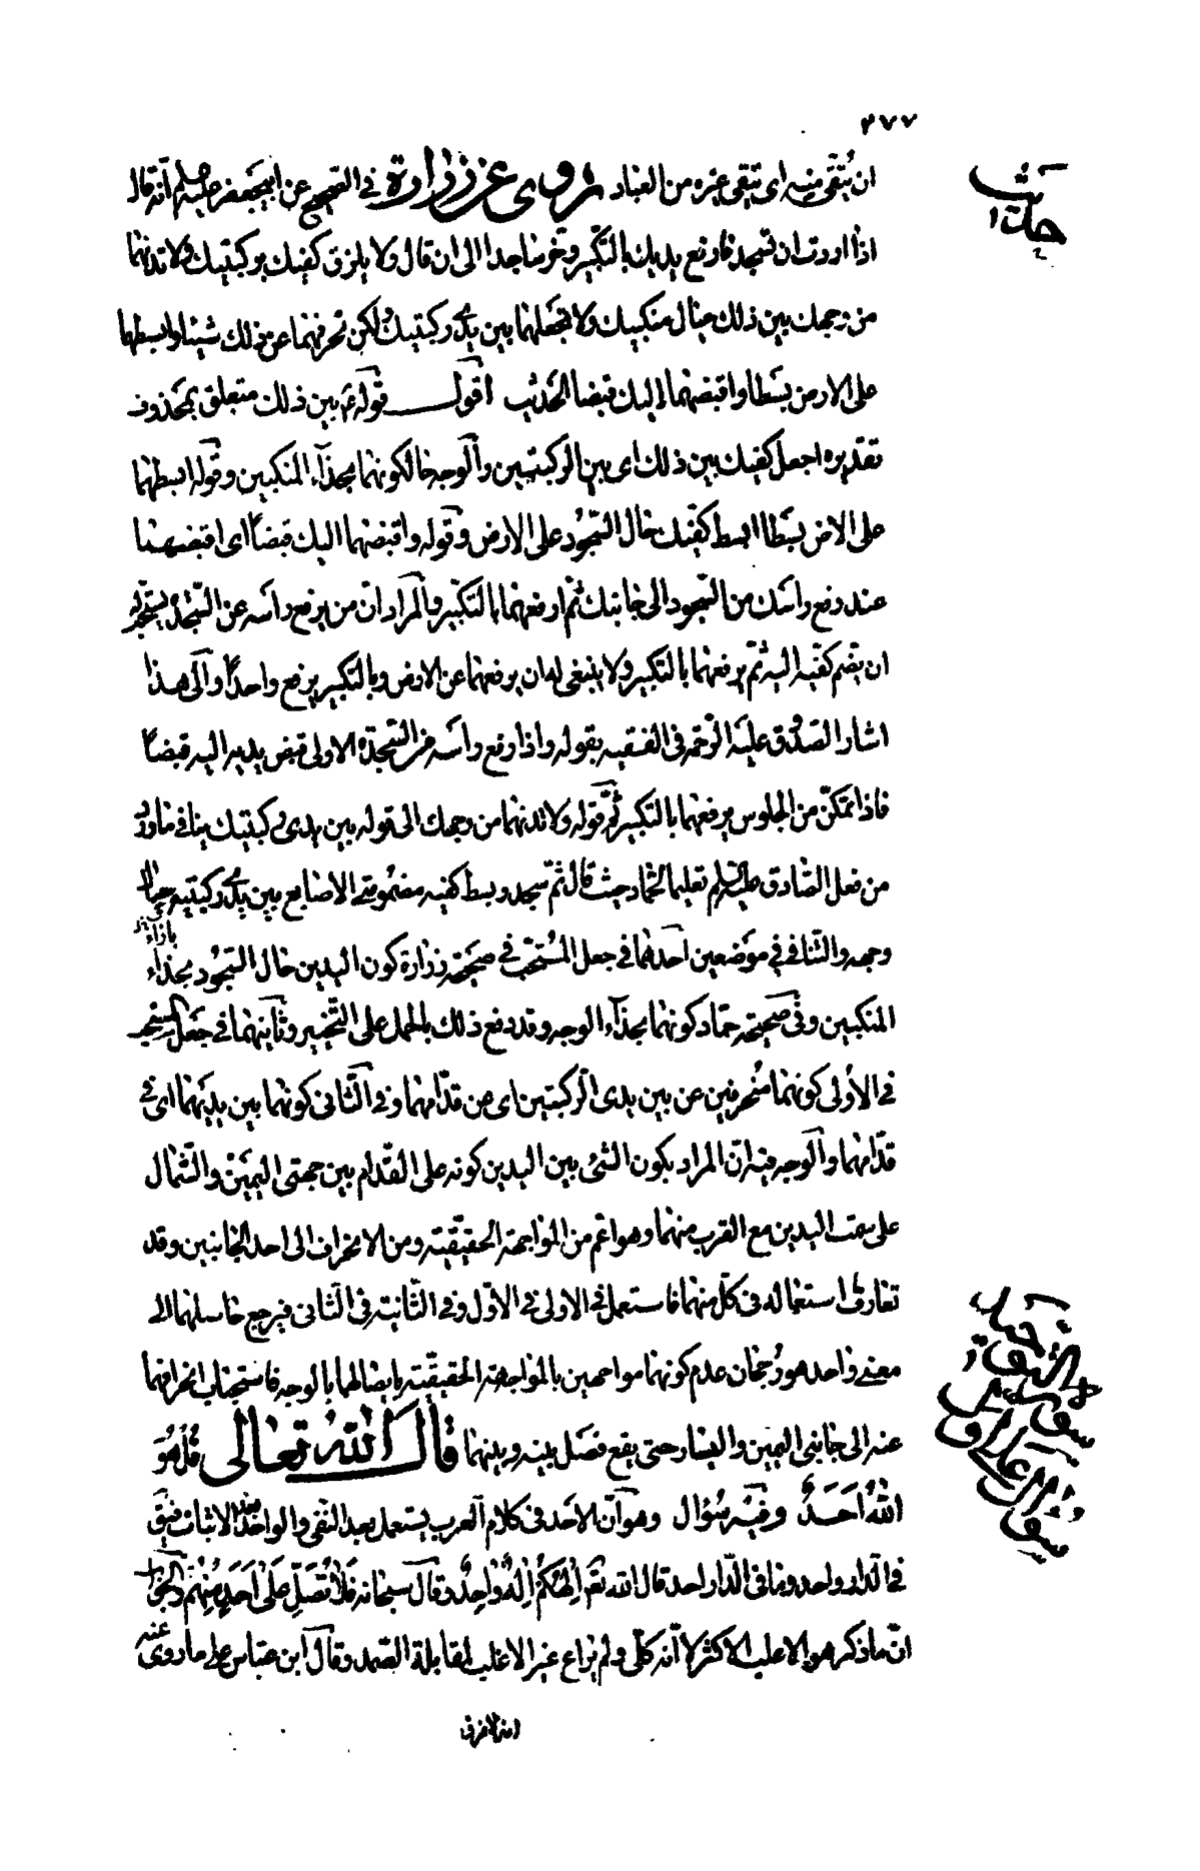 ٣٧٧
ان يُتّقى منه اى يتقى غيره من العباد روى عن زرارة فى الصحيح عن ابيجعفر عليه السلم انه قال
حديث
اذا اردت ان تسجد فارفع يديك بالتكبير وخر ساجدا الى ان قال ولا يلزق كفيك بركبتيك ولا تدنهما
من وجهك بين ذلك حيال منكبيك ولا تجعلهما بين يدى ركبتيك ولكن تحرفهما عن ذلك شيئا وابسطهما
على الارض بسطا واقبضهما اليك قبضا الحديث اقول قوله ع بين ذلك متعلق بمحذوف
تقديره اجعل كفيك بين ذلك اى بين الركبتين والوجه حالكونهما بحذآء المنكبين وقوله ابسطهما
على الارض بسطا ابسط كفيك حال السّجود على الارض وقوله واقبضهما اليك قبضاً اى اقبضهما
عند رفع راسك من السّجود الى جانبك ثم ارفعهما بالتكبير والمراد ان من يرفع راسه عن السّجدة يستحب له
ان يضم كفيه اليه ثم يرفعهما بالتكبير ولا ينبغى له ان يرفعهما عن الارض وبالتكبير برفع واحداً والى هذا
اشار الصدوق عليه الرّحمة فى الفقيه بقوله واذا رفع راسه من السّجدة الاولى قبض يديه اليه قبضاً
فاذا تمكّن من الجلوس يرفعهما بالتكبير ثمّ قوله ولا تدنهما من وجهك الى قوله بين يدى ركبتيك ينافى ما ورد
من فعل الصّادق عليه السلم تعليما لحمّاد حيث قال ثم سجد وبسط كفيه مضمومتى الاصابع بين يدى ركبتيه حيال
بازاء
وجهه والتّنافى فى موضعين احدهما فى جعل المُستحبّ فى صحيحة زرارة كون اليدين حال السّجود بحذاء
المنكبين وفى صحيحة حمّاد كونهما بحذآء الوجه وقد دفع ذلك بالحمل على التّخيير وثانيهما فى جعل المستحب
فى الأولى كونهما مُنحرفين عن بين يدى الرّكبتين اى عن قدّامهما وفى الثّانى كونهما بين يديهما اى فى
قدّامهما والوجه فيه انّ المراد بكون الشّئ بين اليدين كونه على القدّام بين جهتى اليمين والشّمال
على سمت اليدين مع القرب منهما وهو اعمّ من المواجهة الحقيقيّة ومن الانحراف الى احد الجانبين وقد
تعارف استعماله فى كلّ منهما فاستعمل فى الاولى فى الاوّل وفى الثّانية فى الثّانى فيرجع حاصلهما الى
معنى واحد هو رُجحان عدم كونهما مواجهين بالمواجهة الحقيقيّة بايصالهما بالوجه فاستحباب انحرافهما
عنه الى جانبى اليمين واليسار حتى يقع فصل بينه وبينهما قال الله تعالى قُل هُوَ
اللهُ اَحَدٌ وفيه سُؤال وهو انّ الاحد فى كلام العرب يستعمل بعد النّفى والواحد بعد الاثبات فيق
فى الدّار واحد وما فى الدّار احد قال الله تعَ اِلهُكُمْ اِلهٌ واحِدٌ وقال سبحانه فَلا تُصَلِّ عَلى اَحَدٍ مِنْهُمْ والجواب
انّ ما ذكر هو الاغلب الاكثر لا انّه كلّى ولم يراع غير الاغلب لمقابلة الصّمد وقال ابن عبّاس على ما روى عنه
انه لا فرق